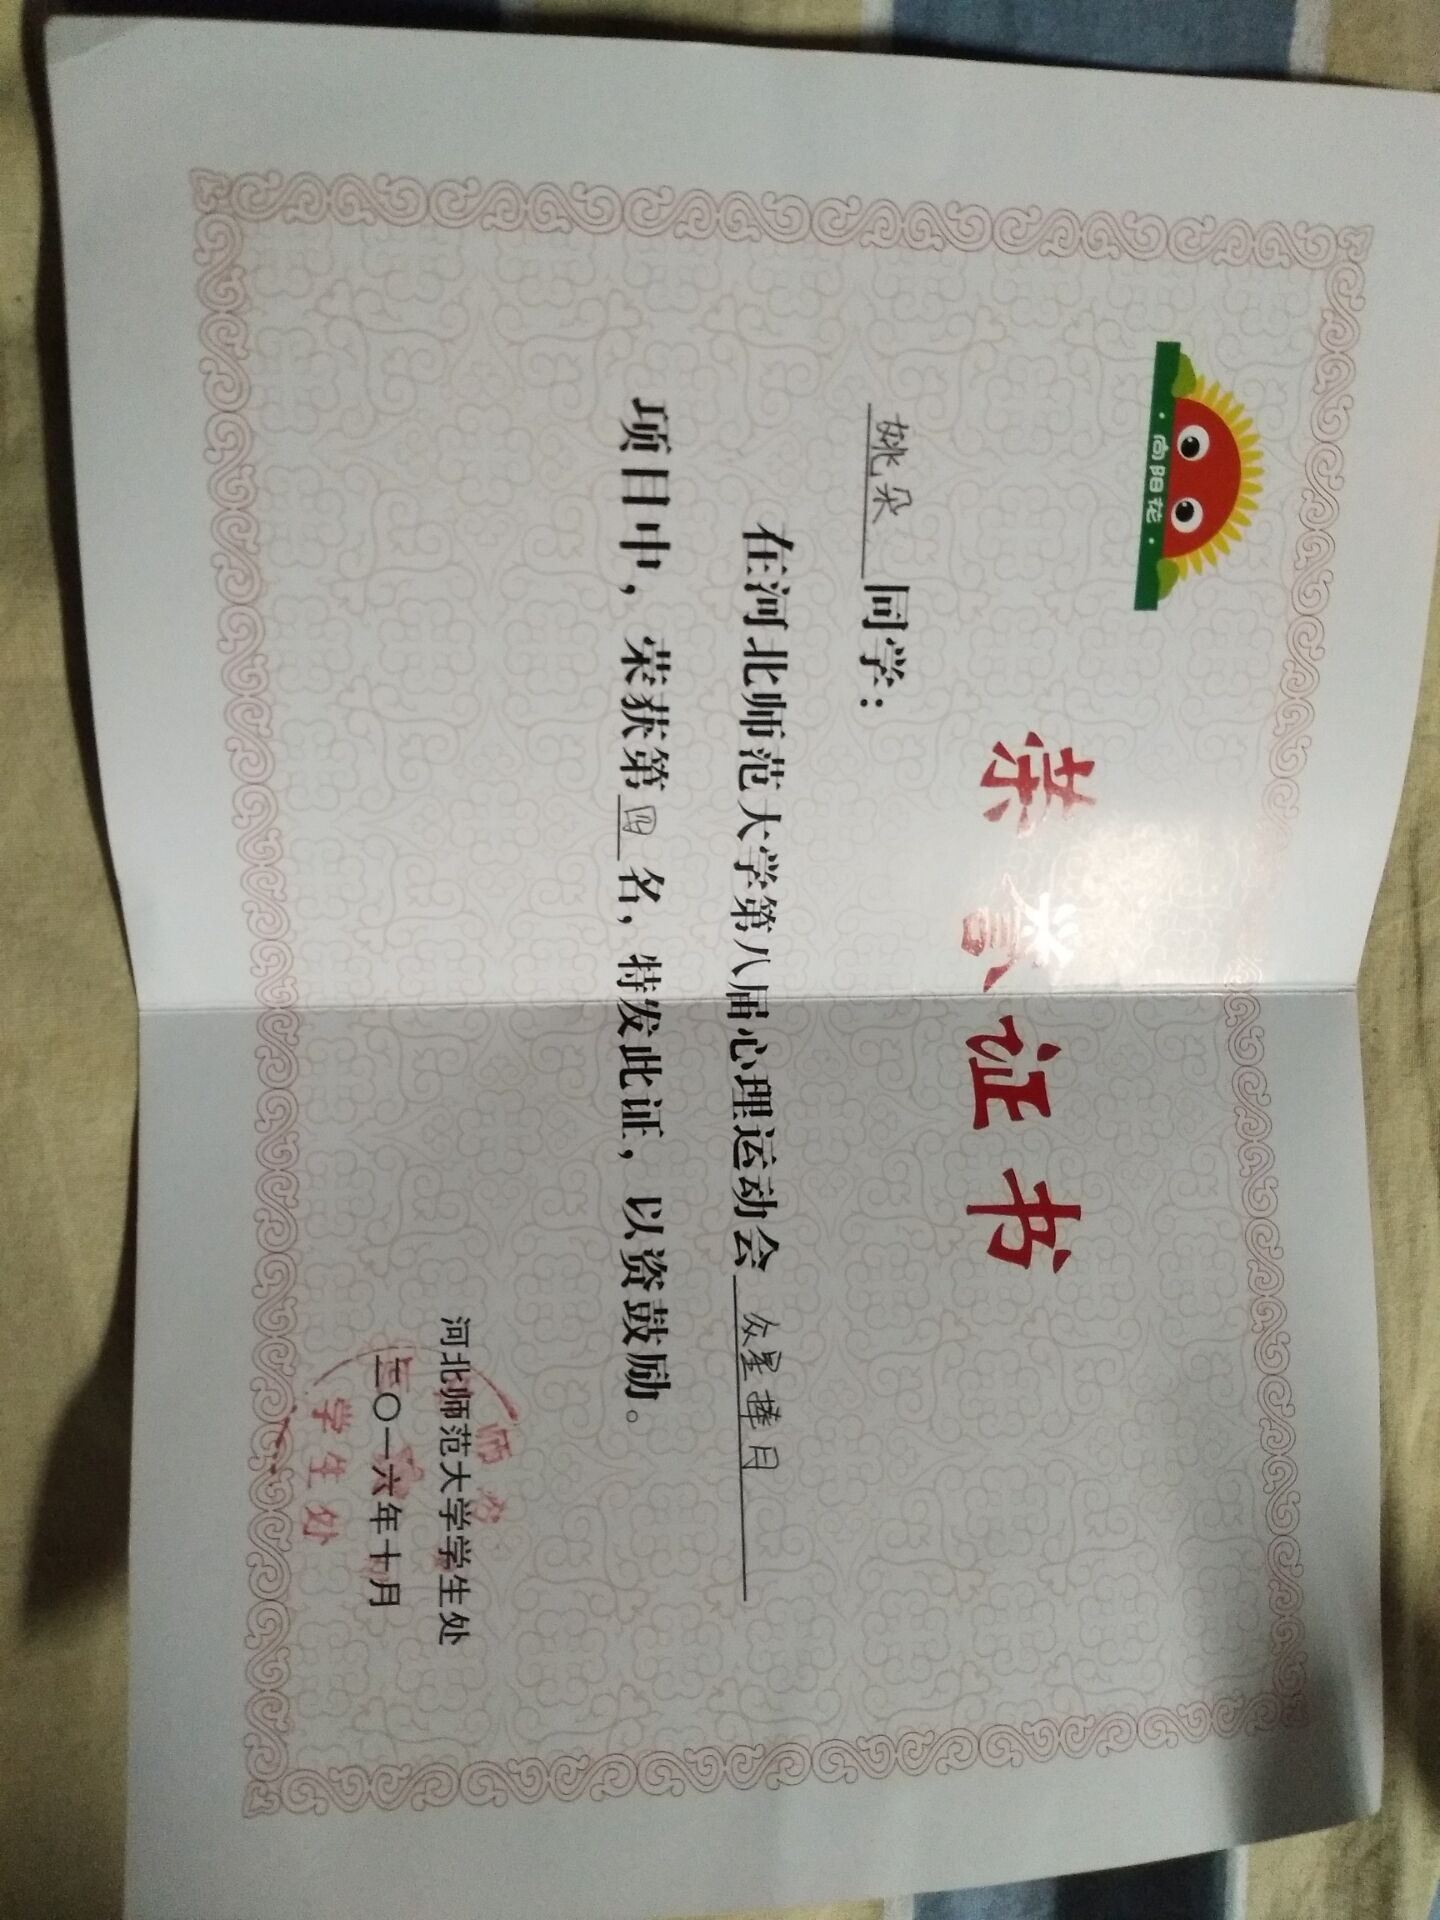 ·向阳花·
荣誉证书
姚朵 同学：
在河北师范大学第八届心理运动会 众星捧月
项目中，荣获第四名，特发此证，以资鼓励。
河北师范大学学生处
二〇一六年十月
学生处